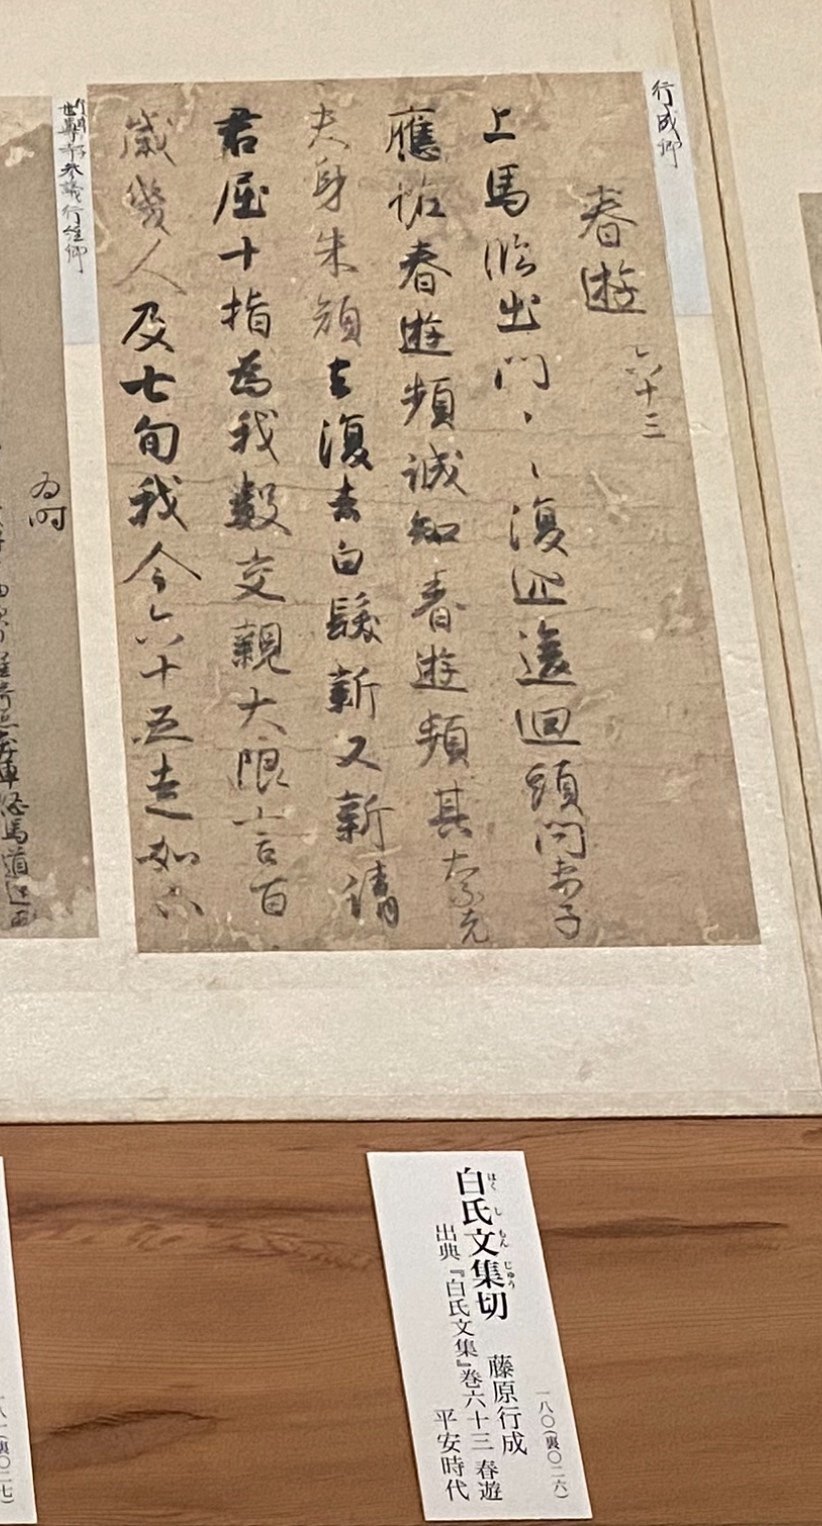 行成卿
春遊 六十三
上馬臨出門〻〻復巡逡迴頭問妻子
應恠春遊頻誠知春遊頻其奈老
大身朱顔去復去白髮新又新請
君屈十指為我數交親大限言百
歲幾人及七旬我今六十五走如下
世尊寺参議行
馬道
一八〇(裏〇二六)
白氏文集切 藤原行成
はくしもんじゅう
出典『白氏文集』巻六十三 春遊
平安時代
一八一(裏〇二七)